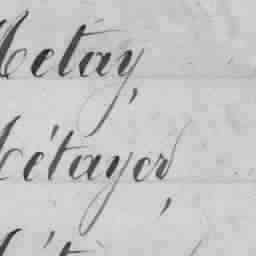 Metay,
Métayer,